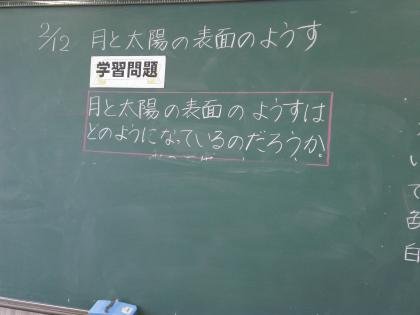 2/12 月と太陽の表面のようす
学習問題
月と太陽の表面のようすは
どのようになっているのだろうか。
い
て
色
白